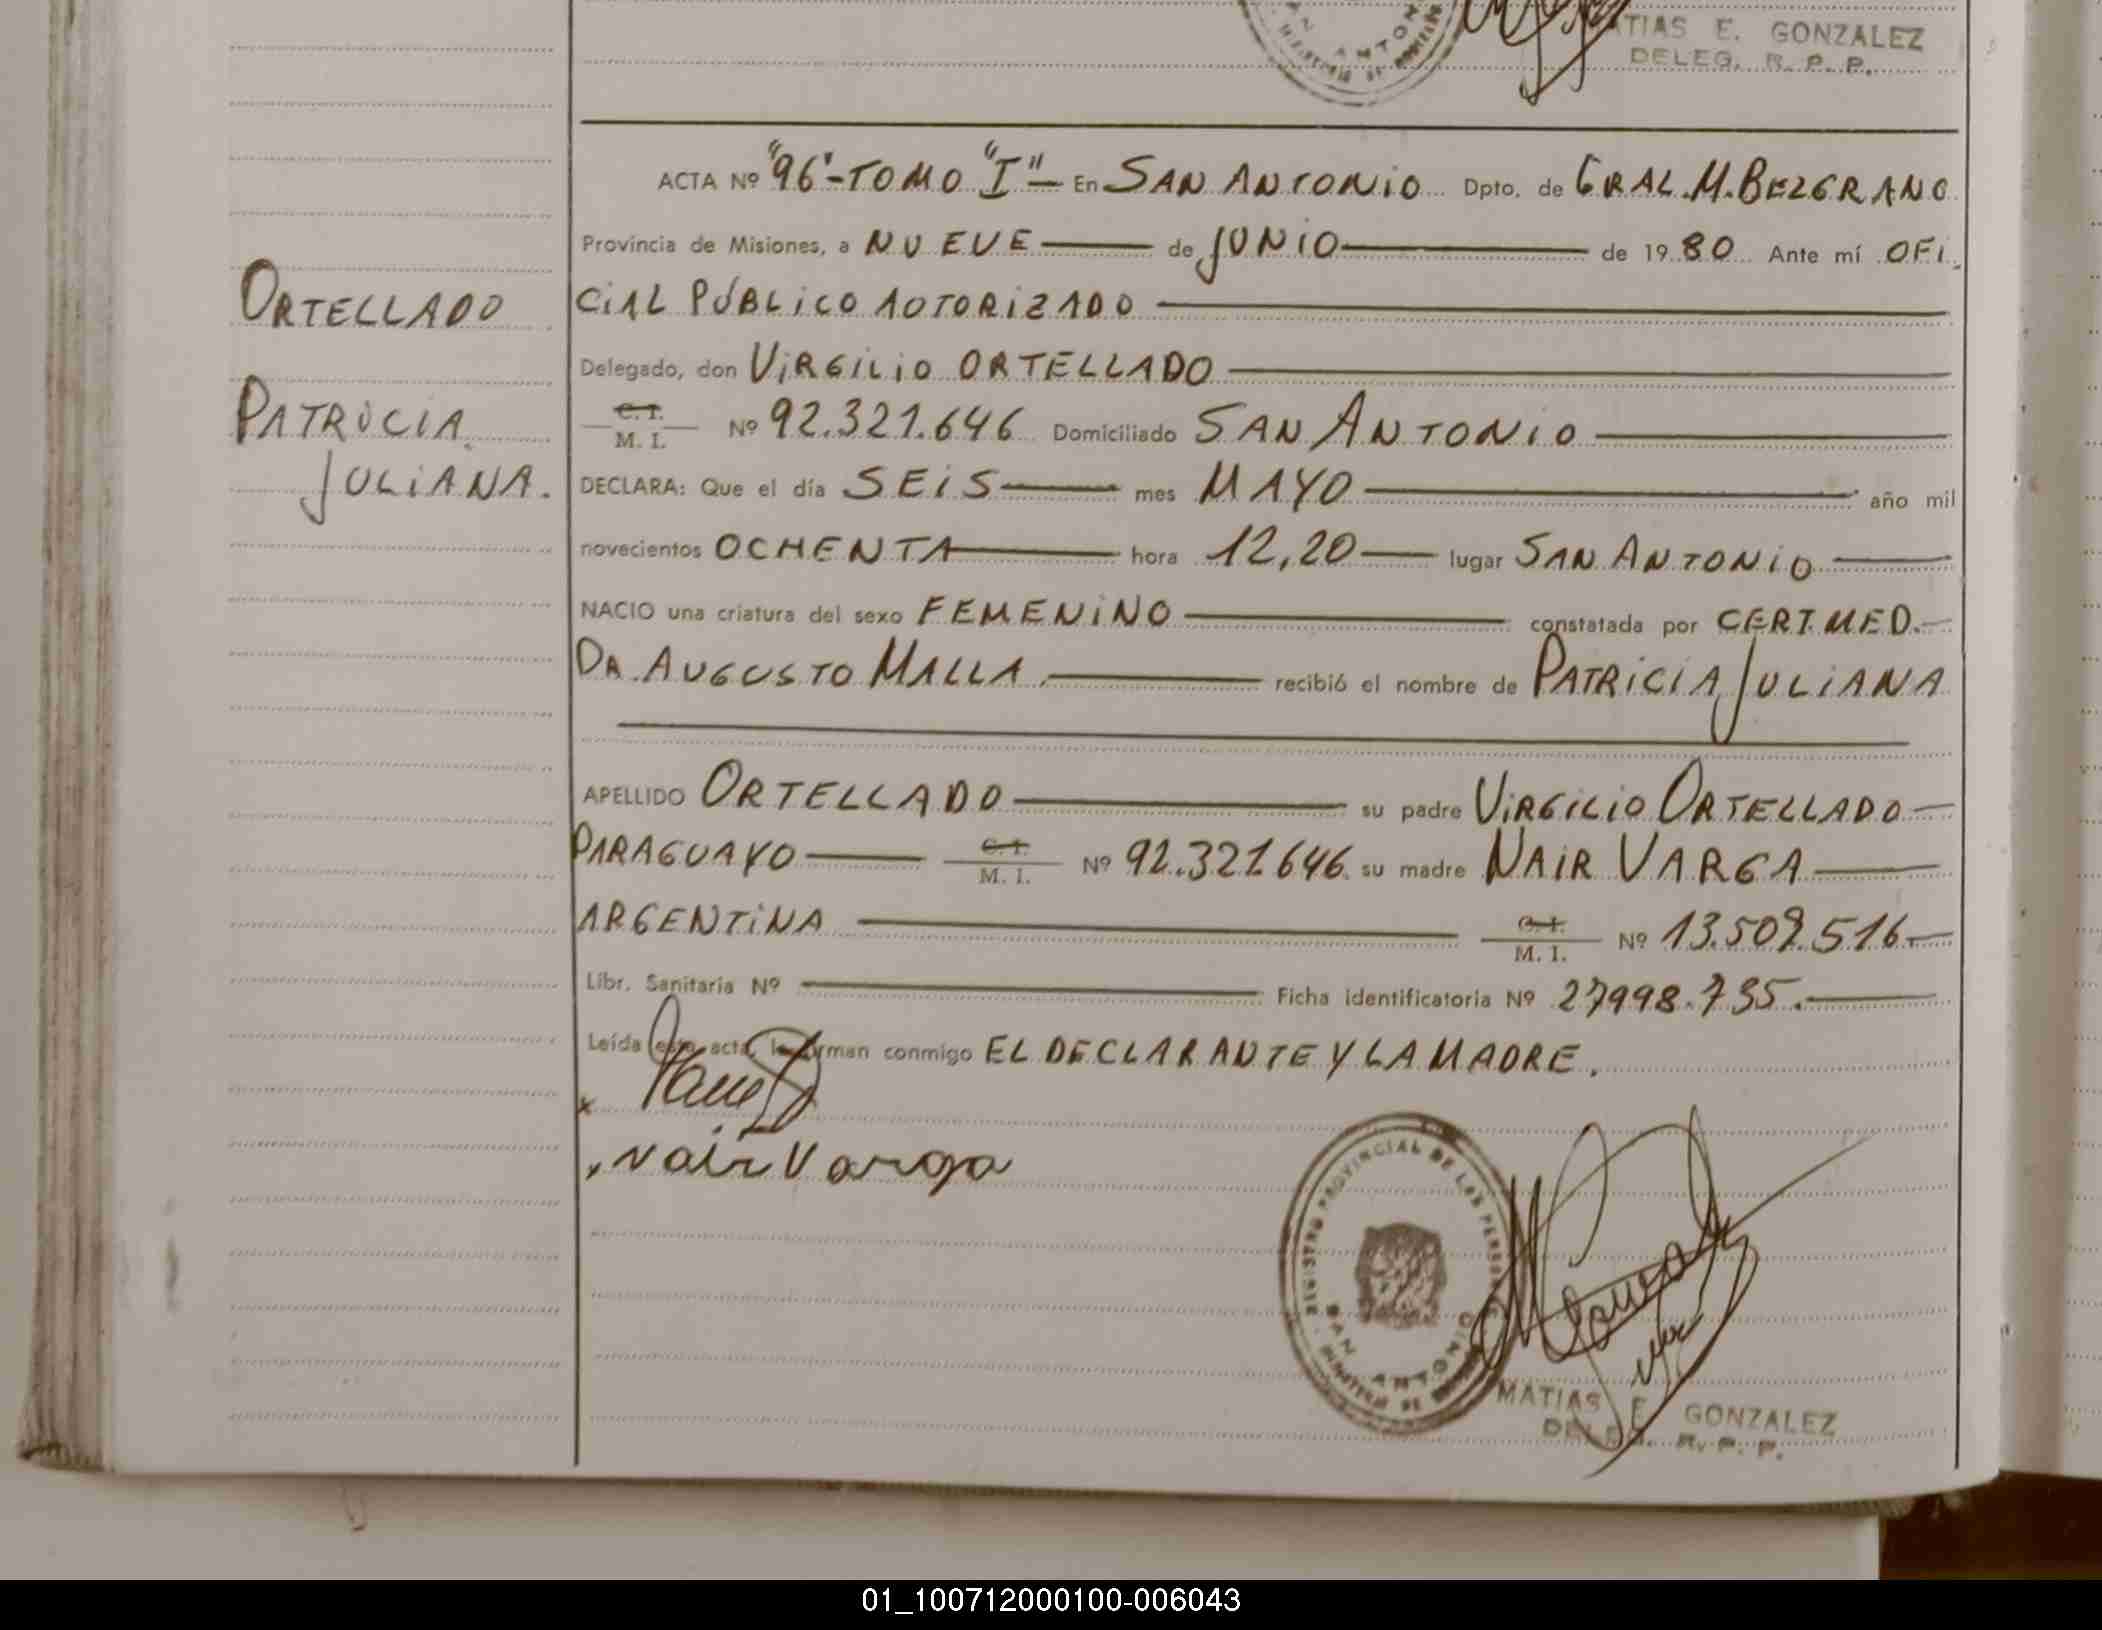 MATIAS E. GONZALEZ
DELEG. R. P. P.
ACTA Nº "96"-TOMO "I"- En SAN ANTONIO Dpto. de GRAL. M. BELGRANO
Provincia de Misiones, a NUEVE de JUNIO de 1980 Ante mí OFI
CIAL PÚBLICO AUTORIZADO
Delegado, don VIRGILIO ORTELLADO
C. I. M. I. Nº 92.321.646 Domiciliado SAN ANTONIO
DECLARA: Que el día SEIS mes MAYO año mil
novecientos OCHENTA hora 12,20 lugar SAN ANTONIO
NACIO una criatura del sexo FEMENINO constatada por CERT. MED.
DR. AUGUSTO MALLA recibió el nombre de PATRICIA JULIANA
APELLIDO ORTELLADO su padre VIRGILIO ORTELLADO
PARAGUAYO C. I. M. I. Nº 92.321.646 su madre NAIR VARGA
ARGENTINA C. I. M. I. Nº 13.509.516
Libr. Sanitaria Nº Ficha identificatoria Nº 27998.735.
Leída esta acta, la firman conmigo EL DECLARANTE Y LA MADRE.
Nair Varga
ORTELLADO
PATRICIA
JULIANA.
REGISTRO PROVINCIAL DE LAS PERSONAS
SAN ANTONIO
MATIAS E. GONZALEZ
DELEG. R. P. P.
01_100712000100-006043